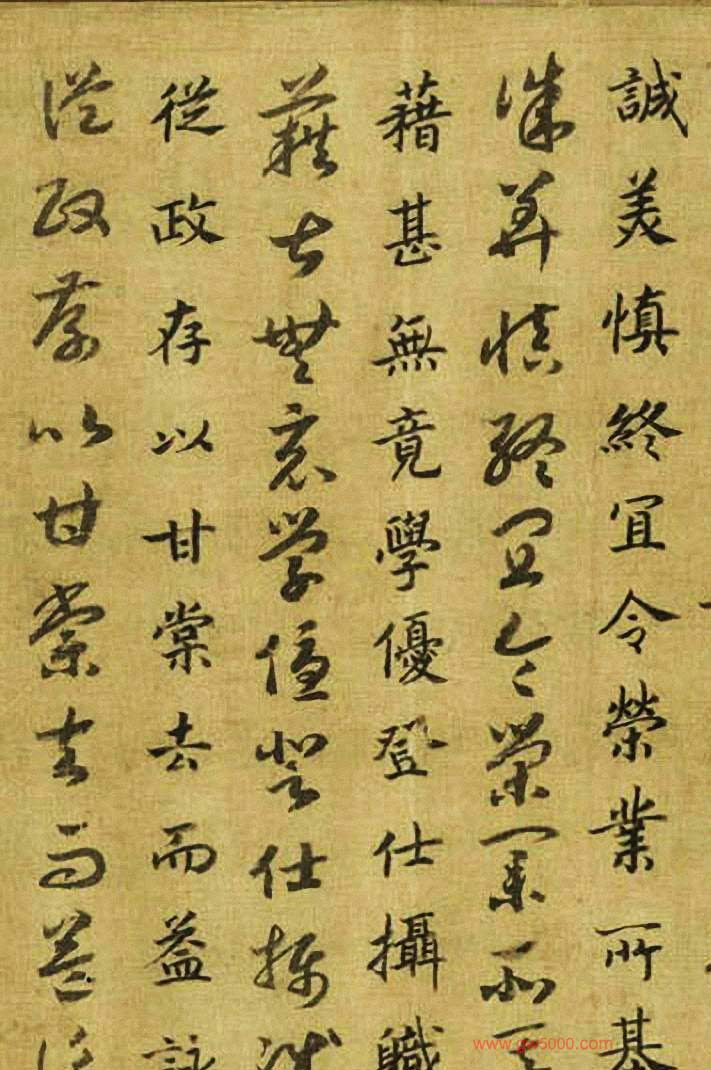 誠美慎終宜令榮業所基
誠美慎終宜令榮業所基
藉甚無竟學優登仕攝職
藉甚無竟學優登仕攝職
從政存以甘棠去而益詠
從政存以甘棠去而益詠